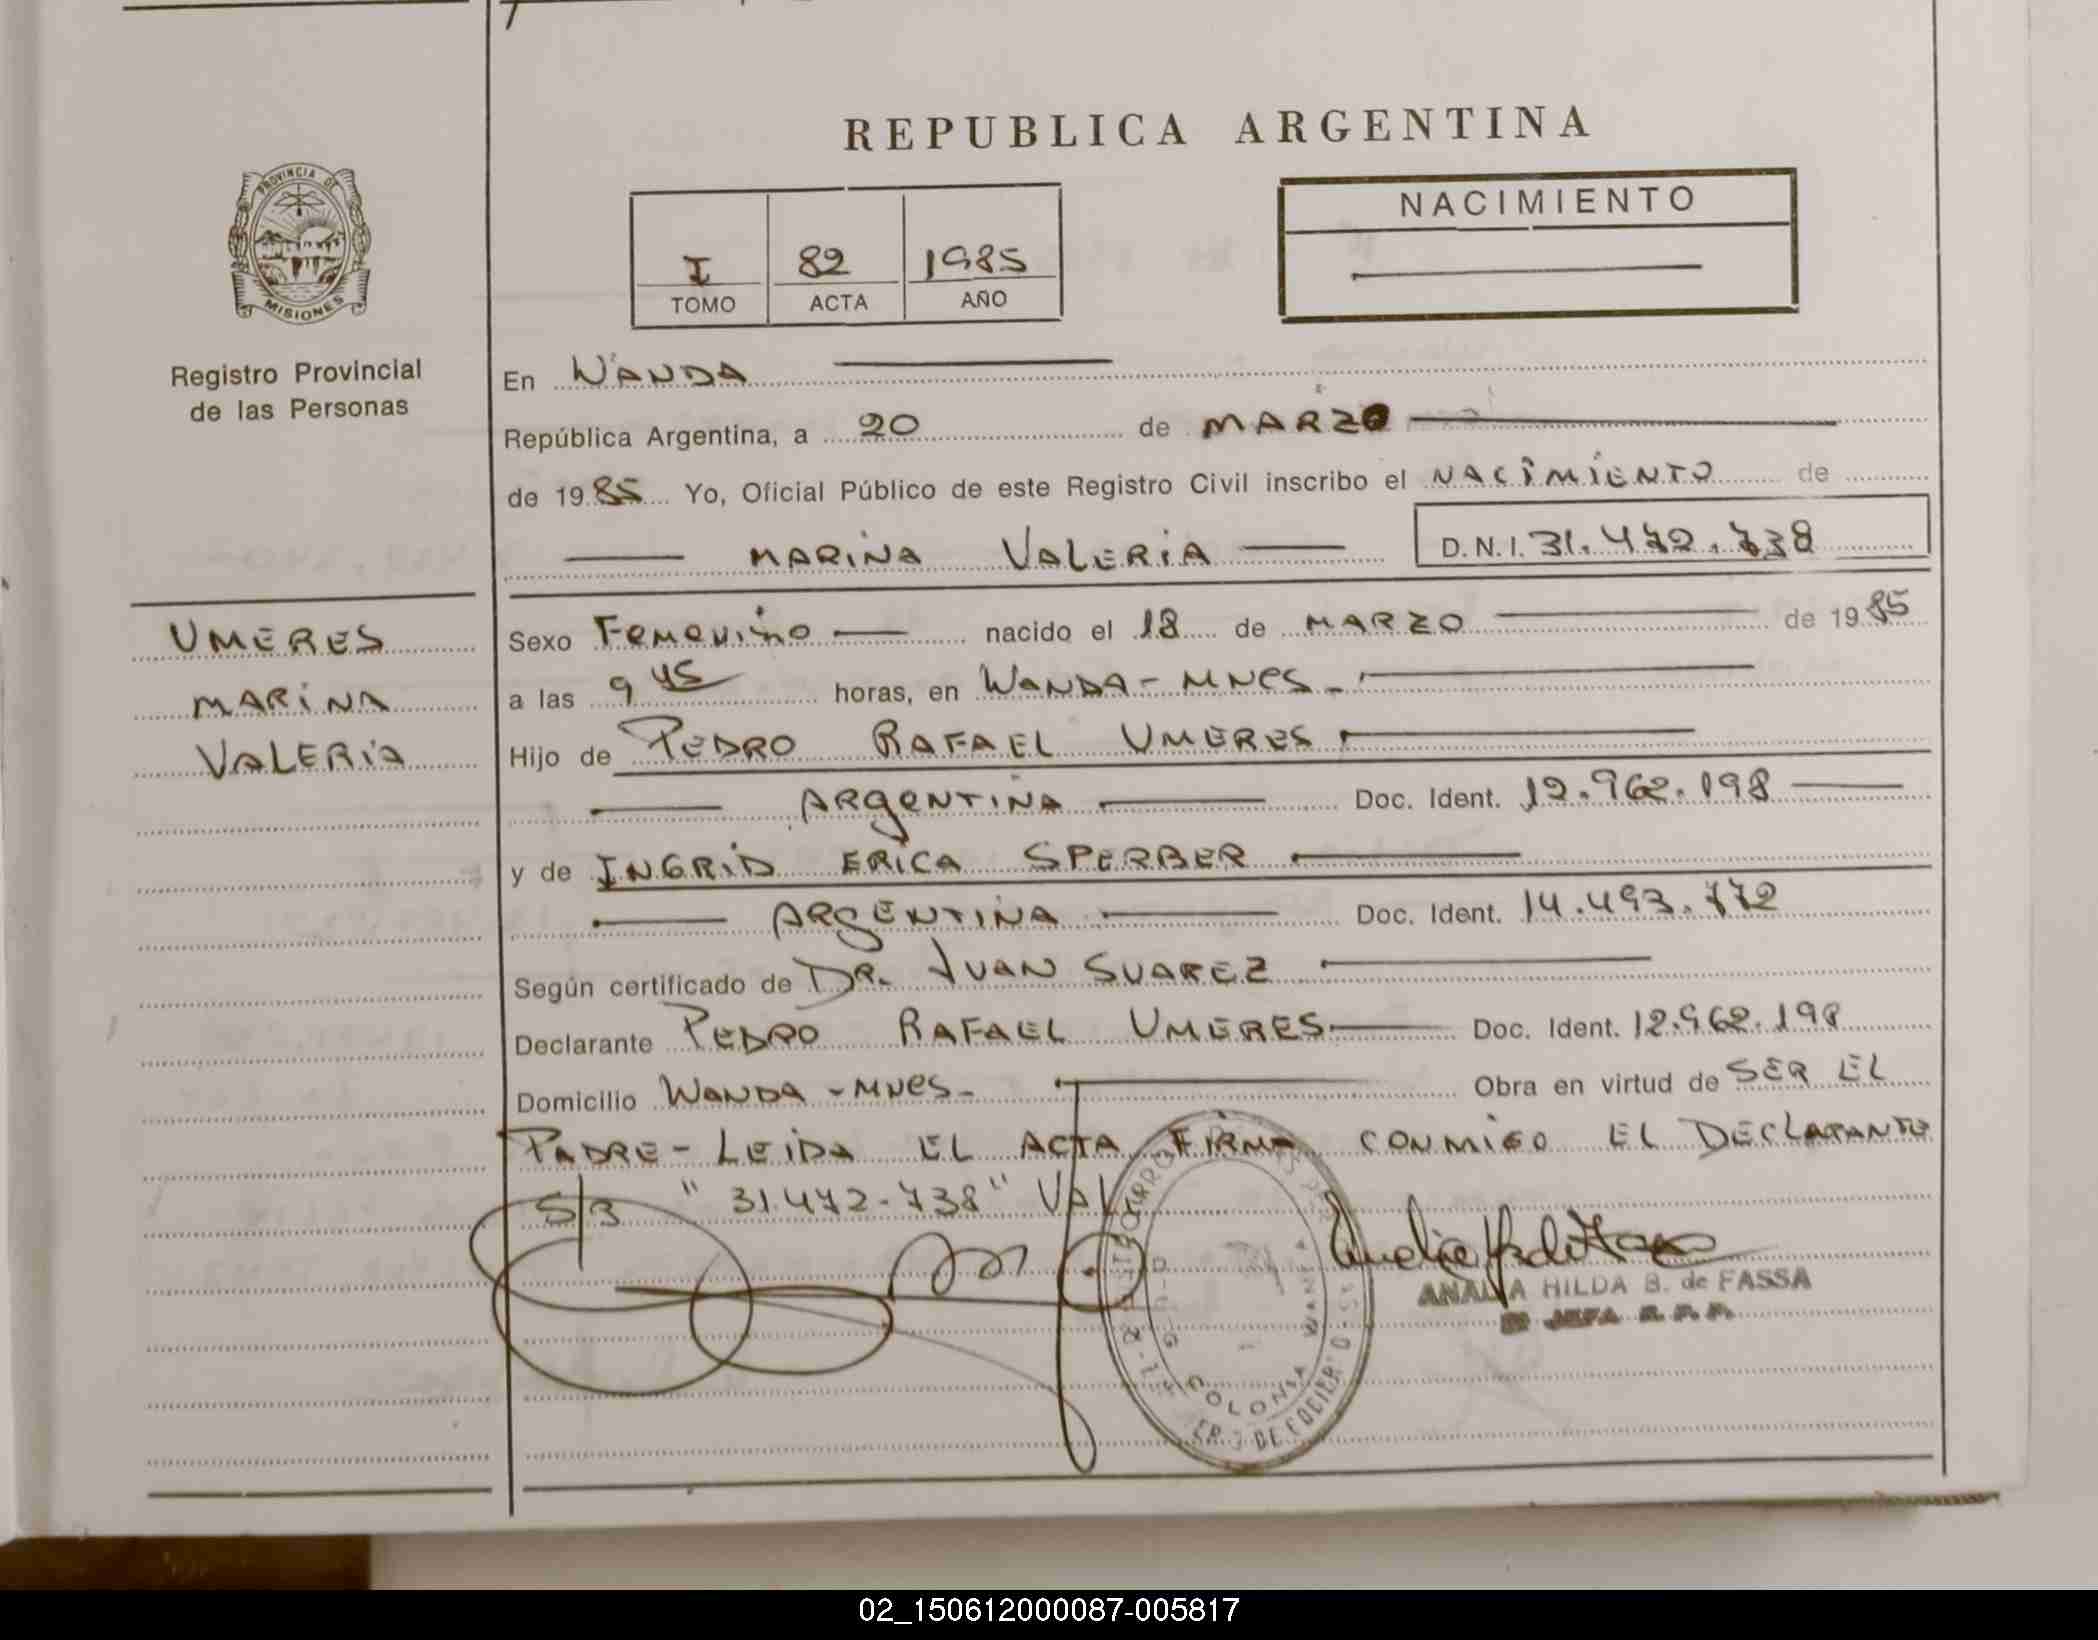 REPUBLICA ARGENTINA
PROVINCIA DE
MISIONES
Registro Provincial
de las Personas
I 82 1985
TOMO ACTA AÑO
NACIMIENTO
En WANDA
República Argentina, a 20 de MARZO
de 1985 Yo, Oficial Público de este Registro Civil inscribo el NACIMIENTO de
MARINA VALERIA D.N.I. 31.472.738
UMERES
MARINA
VALERIA
Sexo Femenino nacido el 18 de MARZO de 1985
a las 9 45 horas, en WANDA - MNES -
Hijo de PEDRO RAFAEL UMERES
ARGENTINA Doc. Ident. 12.962.198
y de INGRID ERICA SPERBER
ARGENTINA Doc. Ident. 14.493.772
Según certificado de DR. JUAN SUAREZ
Declarante PEDRO RAFAEL UMERES Doc. Ident. 12.962.198
Domicilio WANDA - MNES - Obra en virtud de SER EL
PADRE - LEIDA EL ACTA FIRMA CONMIGO EL DECLARANTE
S/B "31.472-738" VAL
COLONIA
WANDA
ANALIA HILDA B. de FASSA
JEFA R. P. P.
02_150612000087-005817